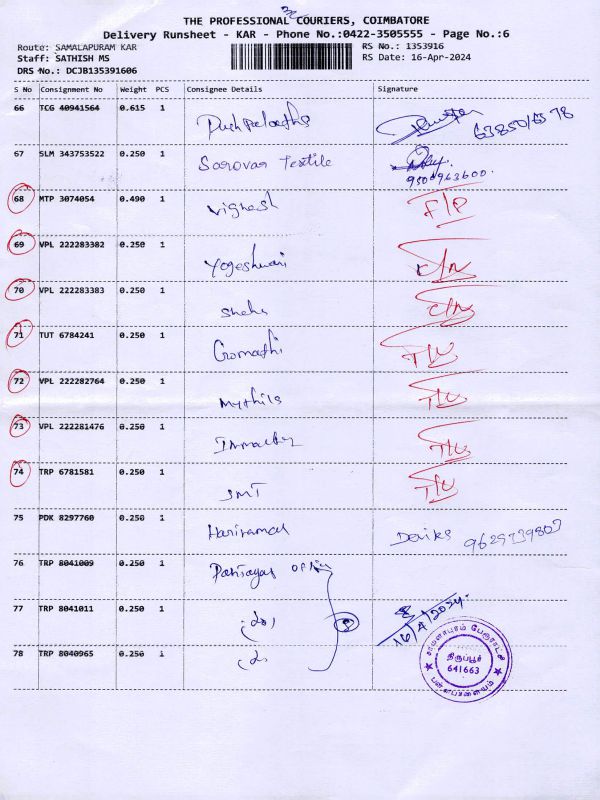 THE PROFESSIONAL COURIERS, COIMBATORE
Delivery Runsheet - KAR - Phone No.:0422-3505555 - Page No.:6
Route: SAMALAPURAM KAR
RS No.: 1353916
Staff: SATHISH MS
RS Date: 16-Apr-2024
DRS No.: DCJB135391606
S No Consignment No Weight PCS Consignee Details Signature
66 TCG 40941564 0.615 1
67 SLM 343753522 0.250 1 Sarovar Textile
9500963600.
68 MTP 3074054 0.490 1 Vignesh F/P
69 VPL 222283382 0.250 1 Yogeshwari C/N
70 VPL 222283383 0.250 1 Sneha C/N
71 TUT 6784241 0.250 1 Gomathi T/U
72 VPL 222282764 0.250 1 Mythila T/U
73 VPL 222281476 0.250 1 T/U
74 TRP 6781581 0.250 1 SMT T/U
75 PDK 8297760 0.250 1 Hariraman
76 TRP 8041009 0.250 1
77 TRP 8041011 0.250 1
16/4/2024
78 TRP 8040965 0.250 1
சாமளாபுரம் பேரூராட்சி
திருப்பூர்
641663
பள்ளபாளையம்